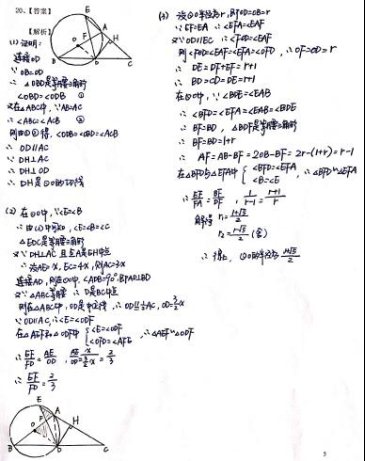 20.【答案】
E
A
F
H
O
B
D
C
【解析】
(1) 证明:
连接OD
∵ OB=OD
∴ △OBD是等腰三角形
∠OBD=∠ODB ①
又在△ABC中, ∵AB=AC
∴ ∠ABC=∠ACB ②
则由①②得, ∠ODB=∠OBD=∠ACB
∴ OD∥AC
∵ DH⊥AC
∴ DH⊥OD
∴ DH是⊙O的切线
(2) 在⊙O中, ∵∠E=∠B
∴ 由(1)中可知, ∠E=∠B=∠C
△EDC是等腰三角形
又∵DH⊥AC 且点A是EH中点
∴ 设AE=x, EC=4x, 则AC=3x
连接AD, 则在⊙O中, ∠ADB=90° 即AD⊥BD
又∵△ABC是等腰 ∴ D是BC中点
则在△ABC中, OD是中位线 ∴ OD∥½AC, OD=3/2x
∵ OD∥AC, ∴∠E=∠ODF
在△AEF和△ODF中 { ∠E=∠ODF ∠OFD=∠AFE , ∴△AEF∽△ODF
∴ EF/FD = AE/OD , AE/OD = x/(3/2x) = 2/3
∴ EF/FD = 2/3
E
A
F
H
O
B
D
C
(3) 设⊙O半径为r, 即OD=OB=r
∵ EF=EA ∴ ∠EFA=∠EAF
又∵OD∥EC ∴ ∠FOD=∠EAF
则∠FOD=∠EAF=∠EFA=∠OFD , ∴ OF=OD=r
∴ DE=DF+EF=r+1
∴ BD=CD=DE=r+1
在⊙O中, ∵∠BDE=∠EAB
∴ ∠BFD=∠EFA=∠EAB=∠BDE
∴ BF=BD , △BDF是等腰三角形
∴ BF=BD=1+r
∴ AF=AB-BF=2OB-BF=2r-(1+r)=r-1
在△BFD与△EFA中 { ∠BFD=∠EFA ∠B=∠E , ∴ △BFD∽△EFA
∴ EF/FA = BF/DF , 1/(r-1) = (r+1)/r
解得 r₁=(1+√5)/2
r₂=(1-√5)/2 (舍)
∴ 综上, ⊙O的半径为 (1+√5)/2